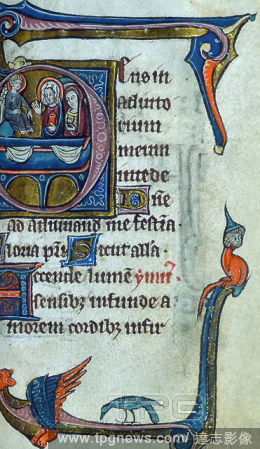 eus in
adiuto
rium
meum
intende
Dñe
ad adiuuand me festina
loria pri Sicut alla
ccende lumē ymn
sensibz infunde a
morem cordibz infir
www.tpgnews.com/ 達志影像